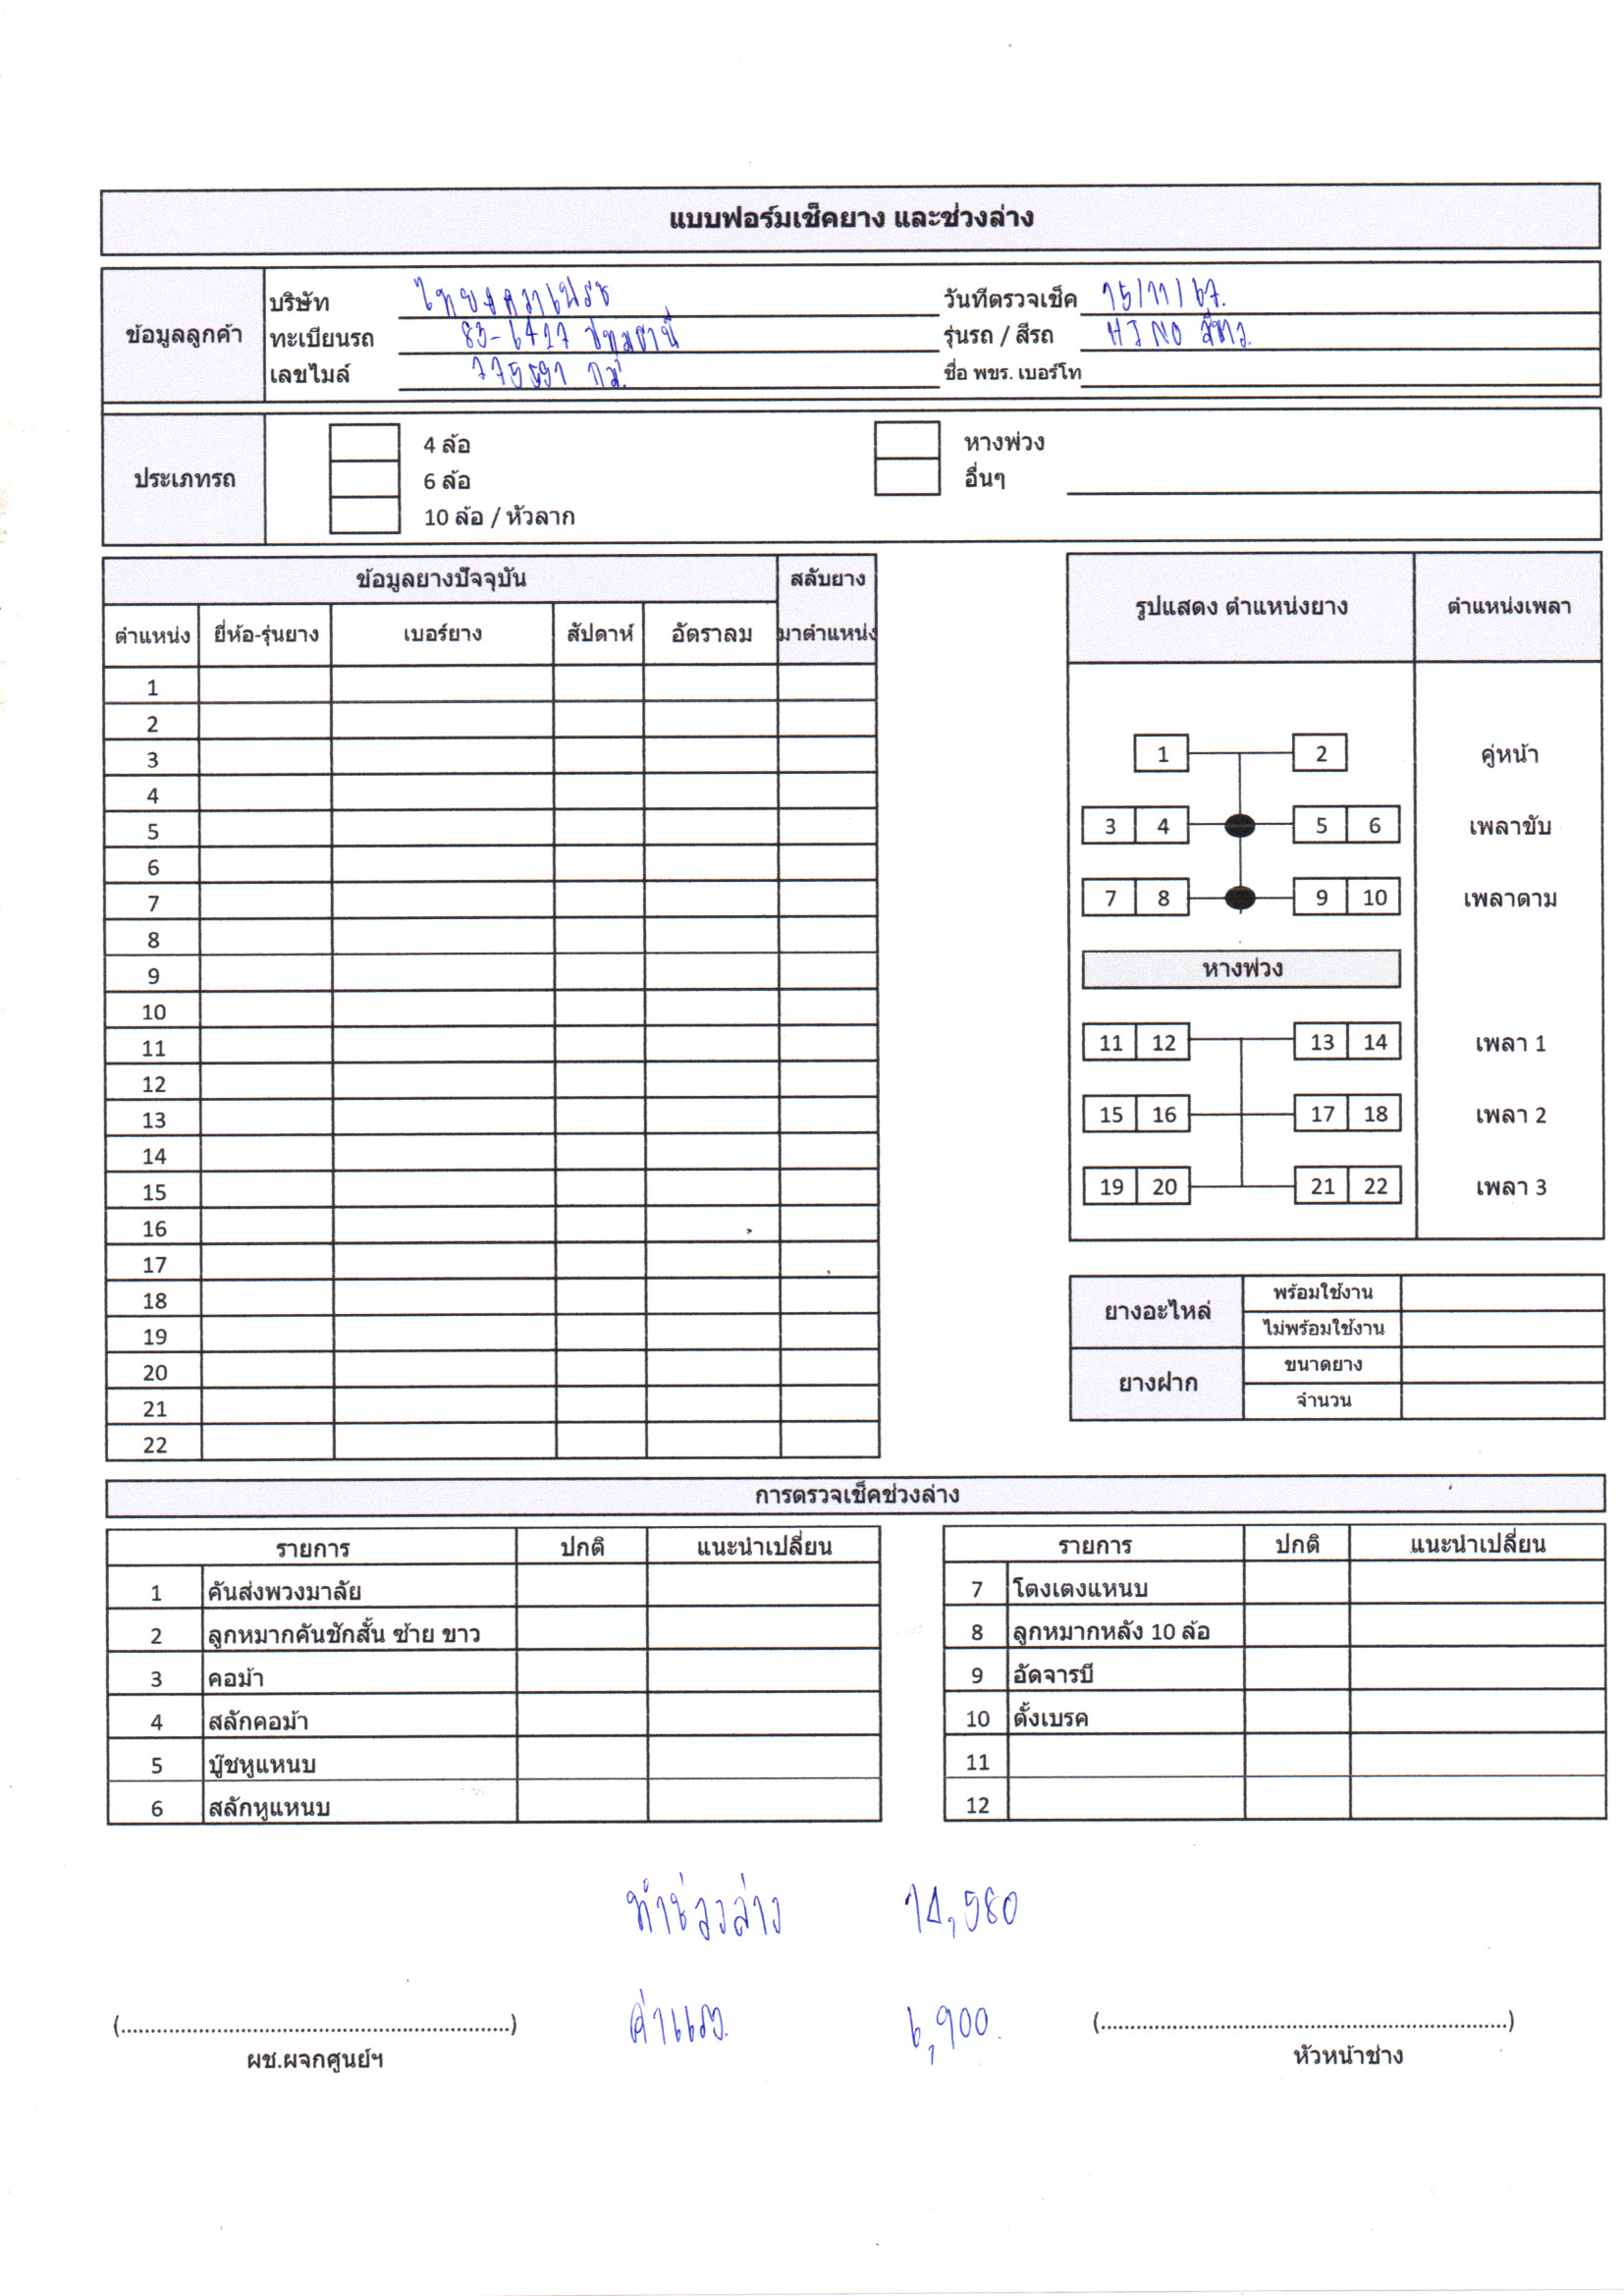 แบบฟอร์มเช็คยาง และช่วงล่าง
ข้อมูลลูกค้า
บริษัท
วันที่ตรวจเช็ค 15/11/67.
ทะเบียนรถ 83-6427 ปทุมธานี
รุ่นรถ / สีรถ HINO สีขาว.
เลขไมล์ กม.
ชื่อ พขร. เบอร์โท
ประเภทรถ
4 ล้อ หางพ่วง
6 ล้อ อื่นๆ
10 ล้อ / หัวลาก
ข้อมูลยางปัจจุบัน สลับยาง
ตำแหน่ง ยี่ห้อ-รุ่นยาง เบอร์ยาง สัปดาห์ อัตราลม มาตำแหน่ง
1
2
3
4
5
6
7
8
9
10
11
12
13
14
15
16
17
18
19
20
21
22
รูปแสดง ตำแหน่งยาง ตำแหน่งเพลา
1 2 คู่หน้า
3 4 5 6 เพลาขับ
7 8 9 10 เพลาตาม
หางพ่วง
11 12 13 14 เพลา 1
15 16 17 18 เพลา 2
19 20 21 22 เพลา 3
ยางอะไหล่ พร้อมใช้งาน
ไม่พร้อมใช้งาน
ยางฝาก ขนาดยาง
จำนวน
การตรวจเช็คช่วงล่าง
รายการ ปกติ แนะนำเปลี่ยน
1 คันส่งพวงมาลัย
2 ลูกหมากคันชักสั้น ซ้าย ขาว
3 คอม้า
4 สลักคอม้า
5 บู๊ชหูแหนบ
6 สลักหูแหนบ
รายการ ปกติ แนะนำเปลี่ยน
7 โตงเตงแหนบ
8 ลูกหมากหลัง 10 ล้อ
9 อัดจารบี
10 ตั้งเบรค
11
12
ทำช่วงล่าง 14,580
ค่าแรง. 6,900.
(....................................................................)
ผช.ผจกศูนย์ฯ
(....................................................................)
หัวหน้าช่าง